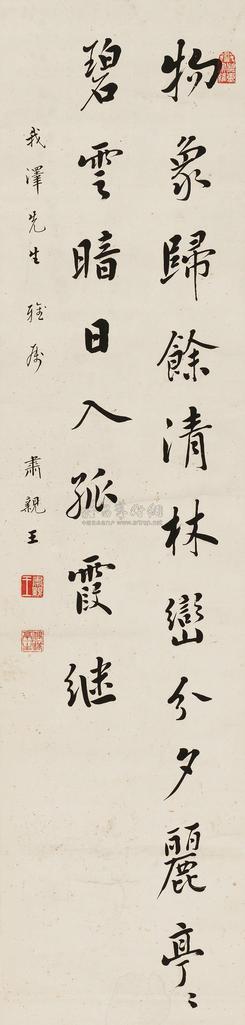 物象歸餘清林巒分夕麗亭〻
碧雲暗日入孤霞继
我澤先生雅屬
肅親王